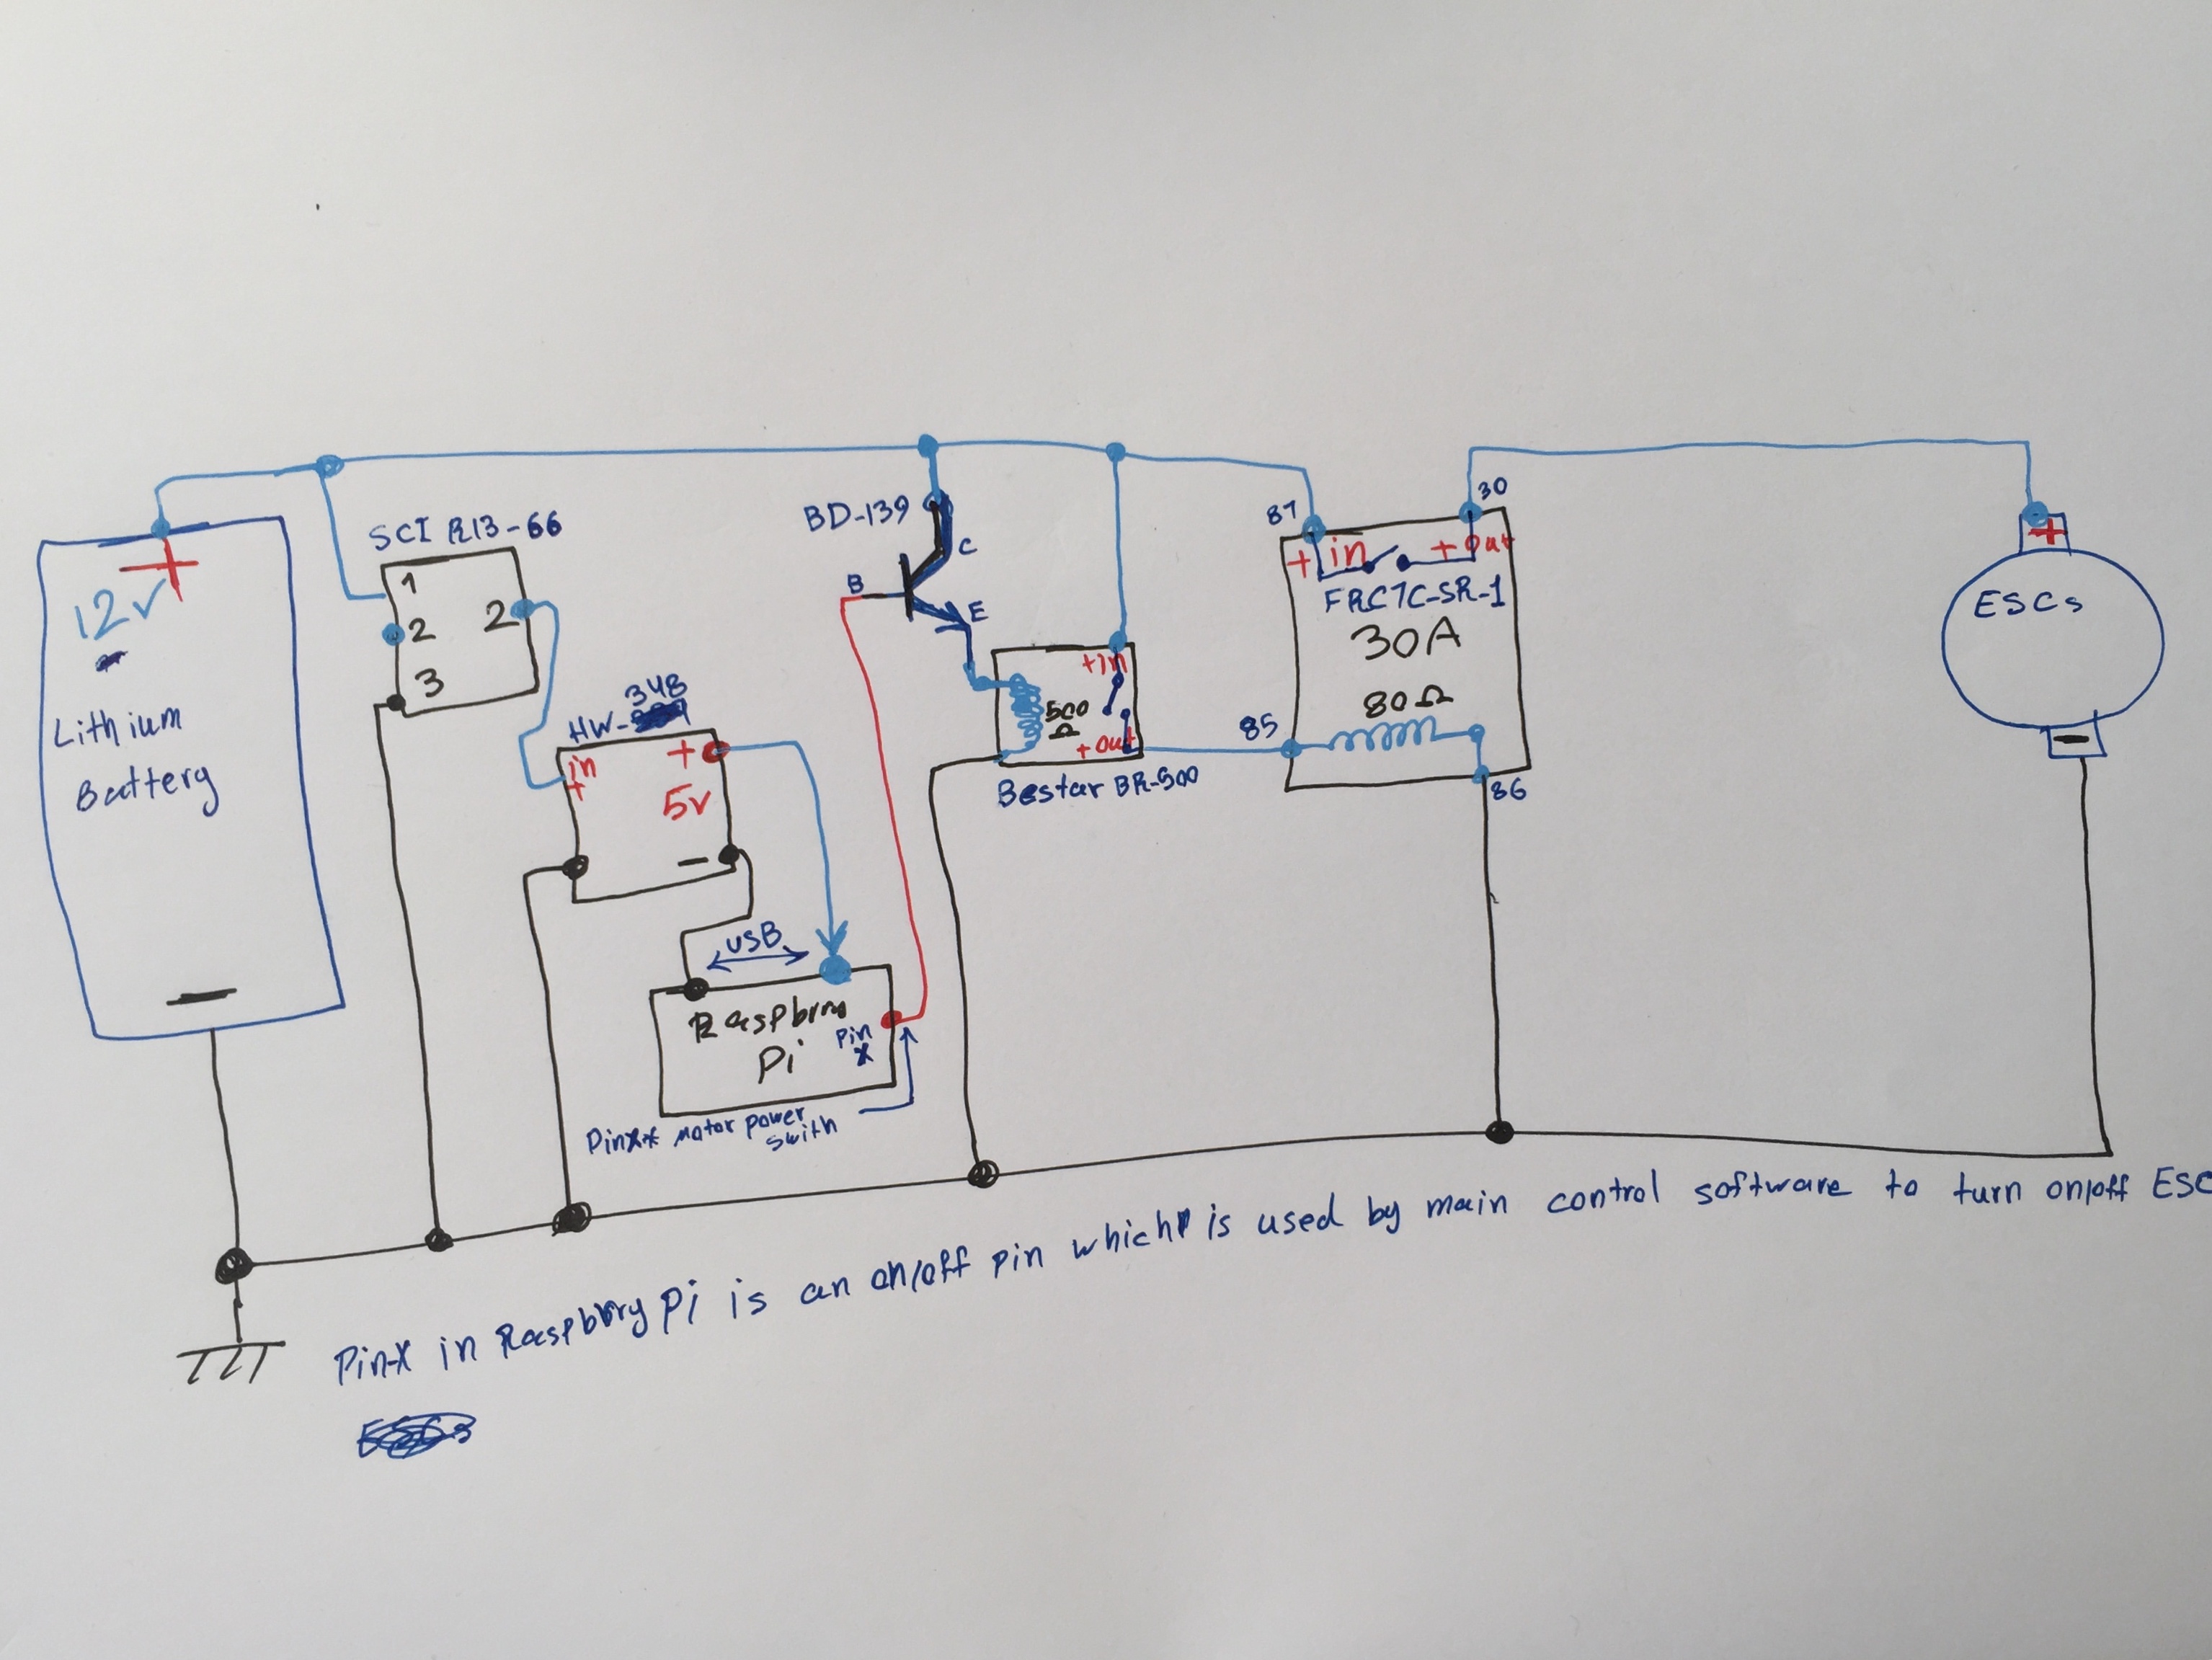 12v
Lithium
Battery
SCI R13-66
1
2
3
2
HW-348
in
+
+
5v
-
USB
Raspbrry
Pi
Pin
X
PinX* Motor power
swith
BD-139
B
C
E
+in
500
Ω
+out
Bestar BR-500
87
30
+ in
+ out
FRC7C-SR-1
30A
80Ω
85
86
+
ESCs
-
Pin-X in Raspbrry Pi is an on/off pin which is used by main control software to turn on/off ESC